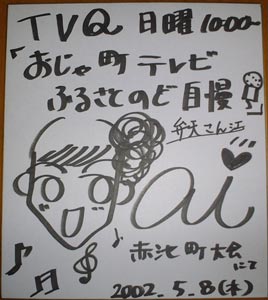 TVQ 日曜 10:00〜
「おじゃ町テレビ
ふるさとのど自慢」
弁天さん江
ai
赤池町大会
にて
2002.5.8(水)